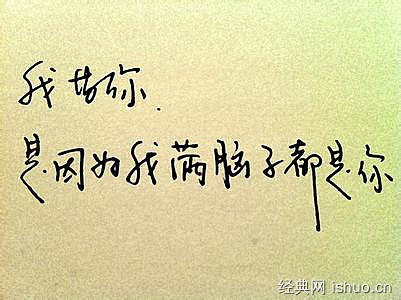 我梦你
是因为我满脑子都是你
经典网 ishuo.cn